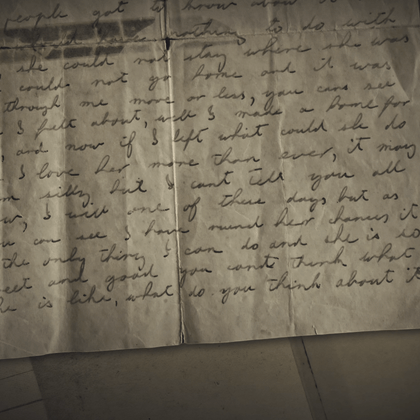 people got to know about
nothing to do with
she could not stay where she was
could not go home and it was
through me more or less, you can see
I felt about, well I made a home for
and now if I left what could she do
I love her more than ever, it may
silly but I cant tell you all
I will one of these days but as
you can see I have ruined her chances it
the only thing I can do and she is so
and good you cant think what
is like, what do you think about it